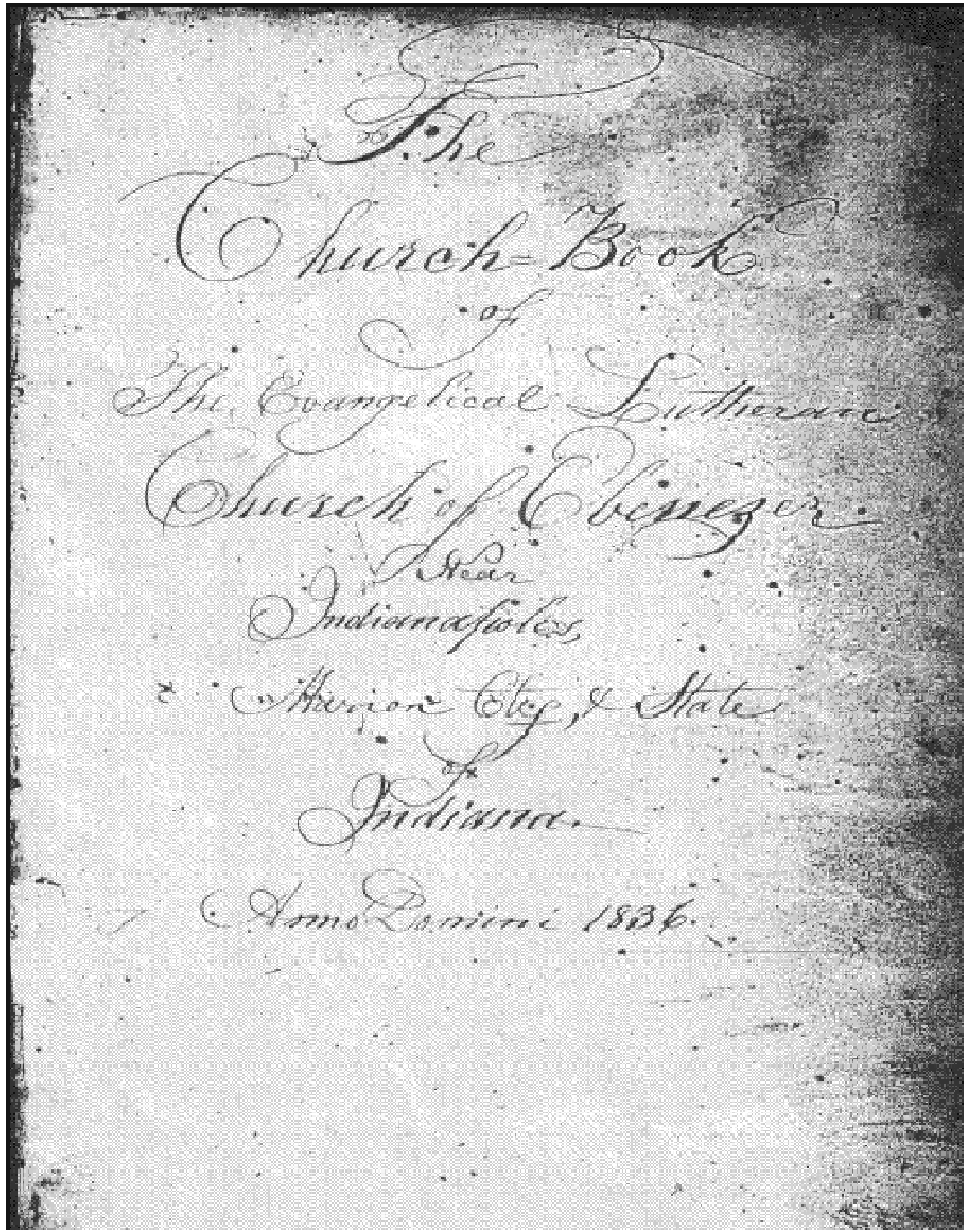 The
Church=Book
of
The Evangelical Lutheran
Church of Ebenezer
Near
Indianapolis,
Marion Cty, & State
of
Indiana.
Anno Domini 1836.